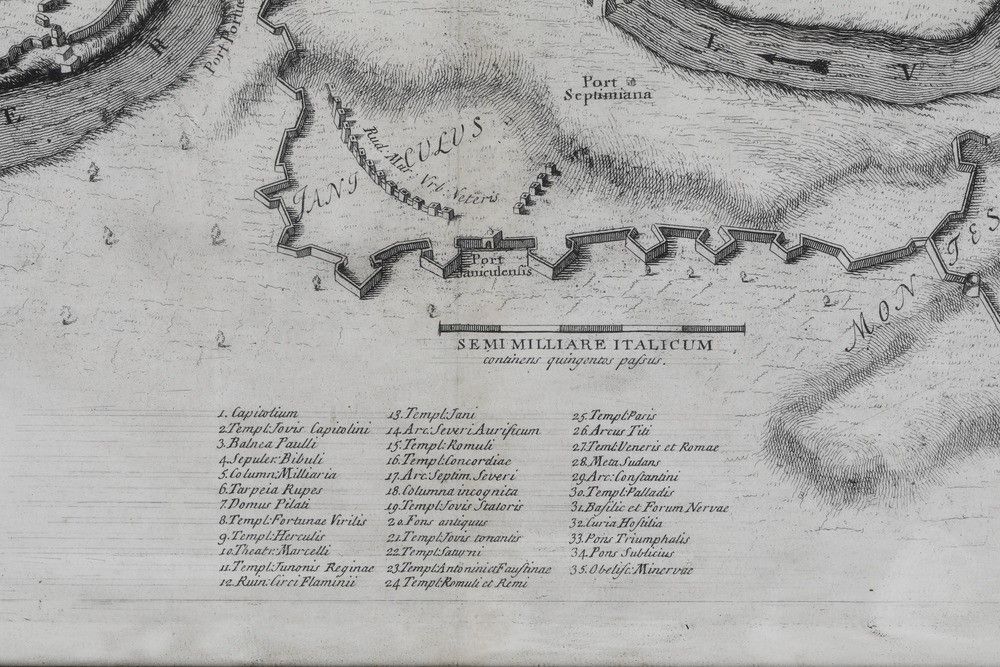 Port
Septimiana
T E R
L V
IANICULUS
Rud. Mur. Vrb. Veteris
Port
Janiculensis
MONTES
SEMI MILLIARE ITALICUM
continens quingentos passus.
1. Capitolium
2. Templ: Jovis Capitolini
3. Balnea Paulli
4. Sepulcr: Bibuli
5. Column: Milliaria
6. Tarpeia Rupes
7. Domus Pilati
8. Templ: Fortunae Virilis
9. Templ: Herculis
10. Theatr: Marcelli
11. Templ: Junonis Reginae
12. Ruin: Circi Flaminii
13. Templ: Jani
14. Arc: Severi Aurificum
15. Templ: Romuli
16. Templ: Concordiae
17. Arc: Septim. Severi
18. Columna incognita
19. Templ: Jovis Statoris
20. Fons antiquus
21. Templ: Jovis tonantis
22. Templ: Saturni
23. Templ: Antonini et Faustinae
24. Templ: Romuli et Remi
25. Templ: Pacis
26. Arcus Titi
27. Teml: Veneris et Romae
28. Meta Sudans
29. Arc: Constantini
30. Templ: Palladis
31. Basilic et Forum Nervae
32. Curia Hostilia
33. Pons Triumphalis
34. Pons Sublicius
35. Obelisc: Minervae